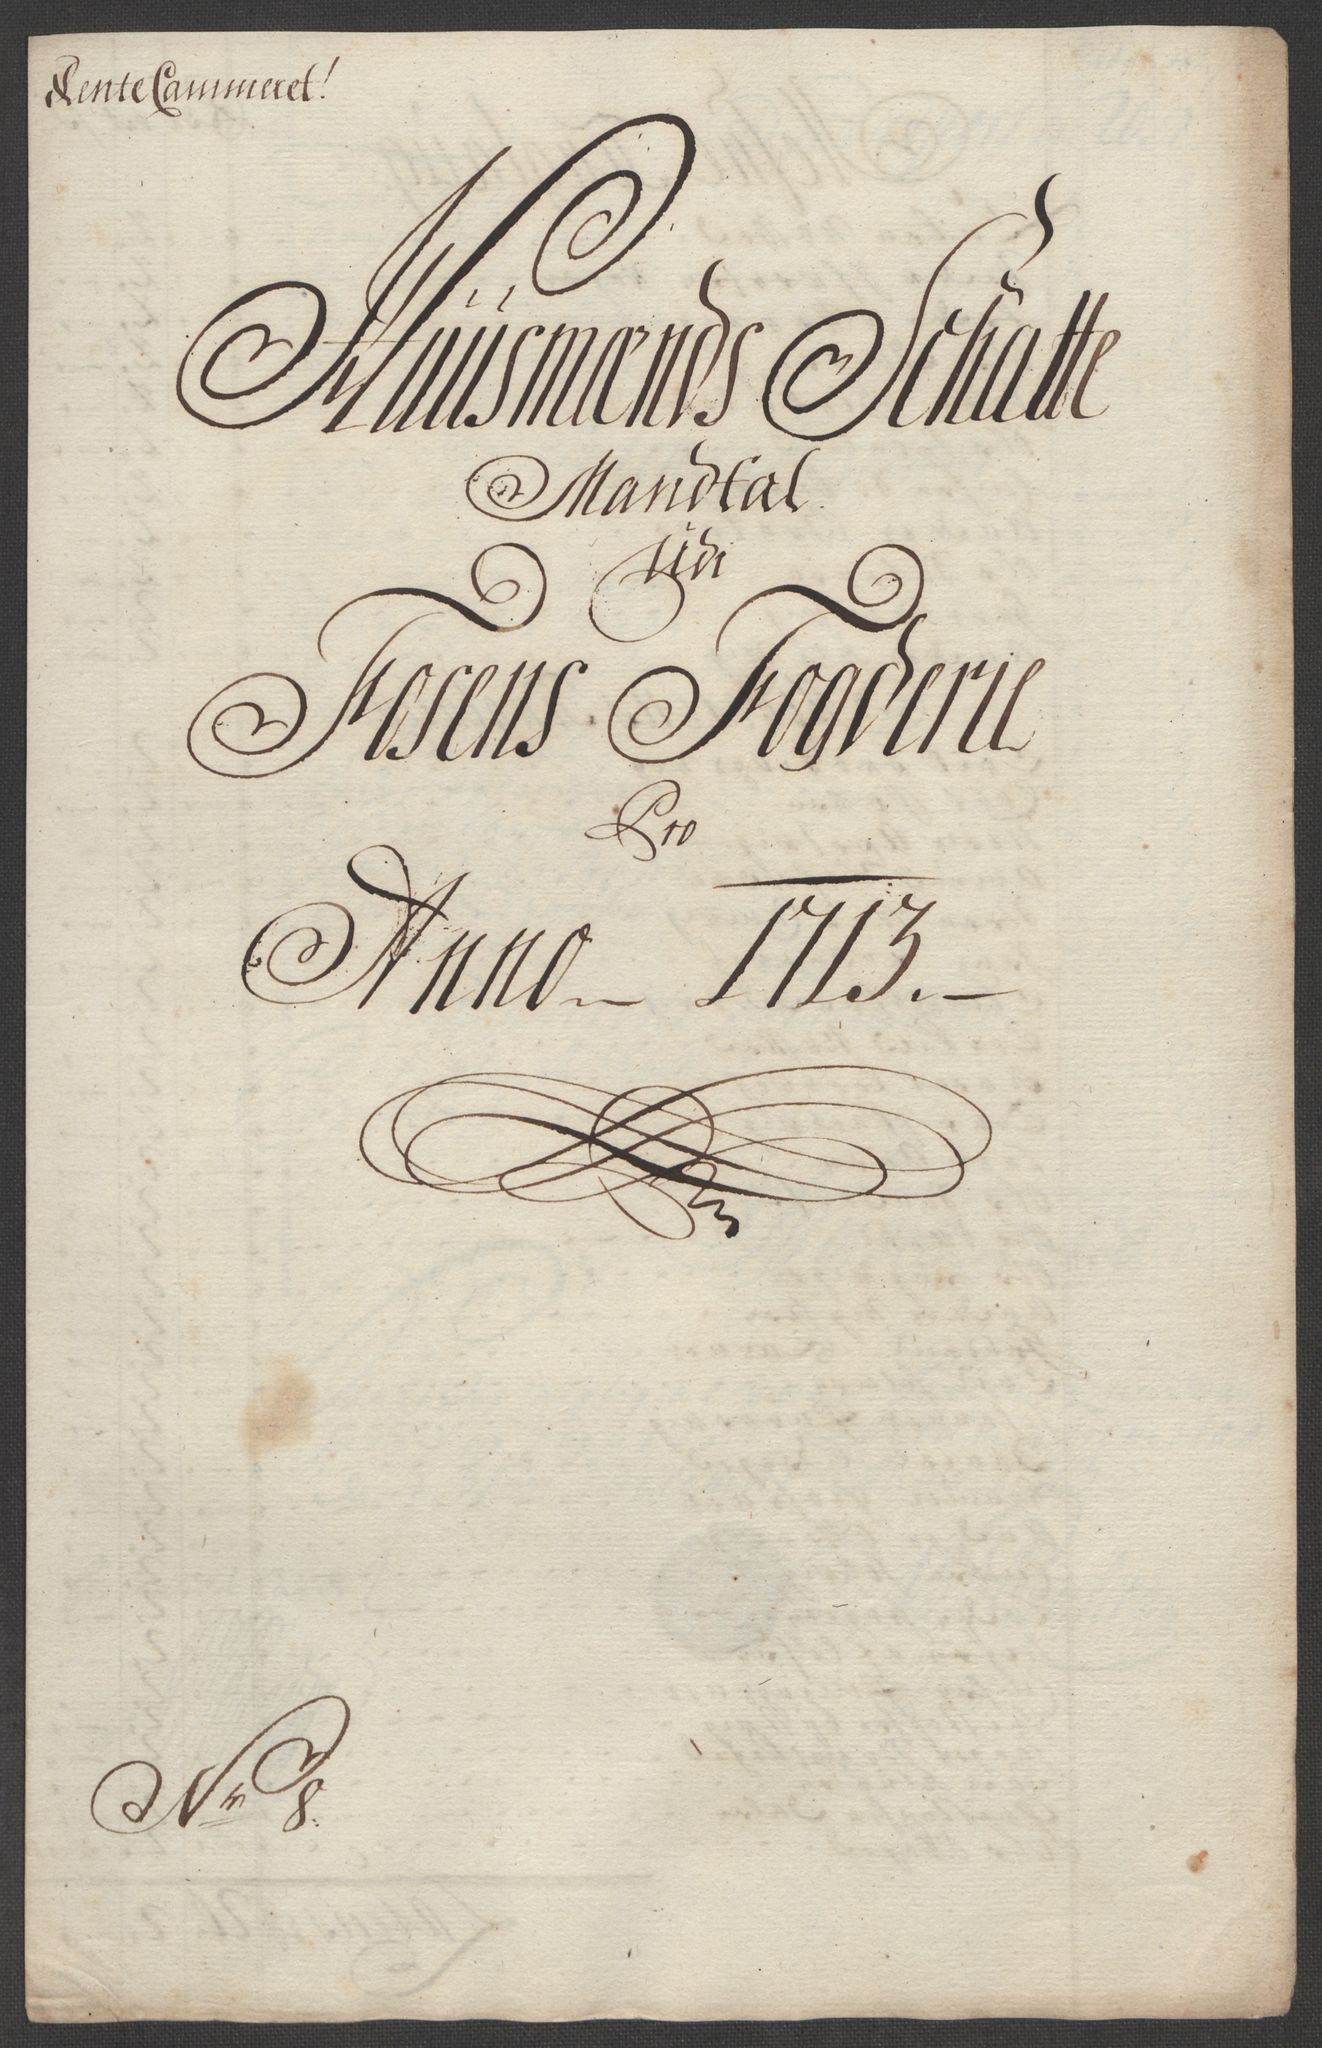 RenteCammeret!
Huusmænds Schatte
Mandtal
udi
Fosens Fogderie
Pro
Anno 1713.
No 8.